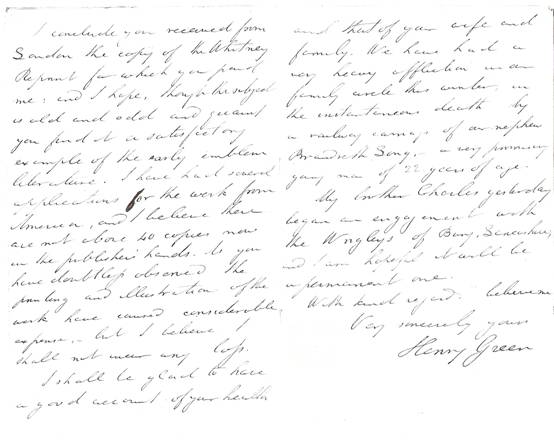 I conclude you received from
London the copy of the Whitney
Reprint for which you paid
me; and I hope, though the subject
is old and odd and quaint
you find it a satisfactory
example of the early emblem
literature. I have had several
applications for the work from
America, and I believe there
are not above 40 copies now
in the publisher's hands. As you
have doubtless observed the
printing and illustration of the
work have caused considerable
expense, but I believe I
shall not incur any loss.
I shall be glad to have
a good account of your health
and that of your wife and
family. We have had a
very heavy affliction in our
family circle this winter, in
the instantaneous death by
a railway carriage of our nephew
Brandreth a very promising
young man of 22 years of age.
My brother Charles yesterday
began an engagement with
the Wrigleys of Bury, Lancashire,
and I am hopeful it will be
a permanent one.
With kind regard. believe me
Very sincerely yours
Henry Green